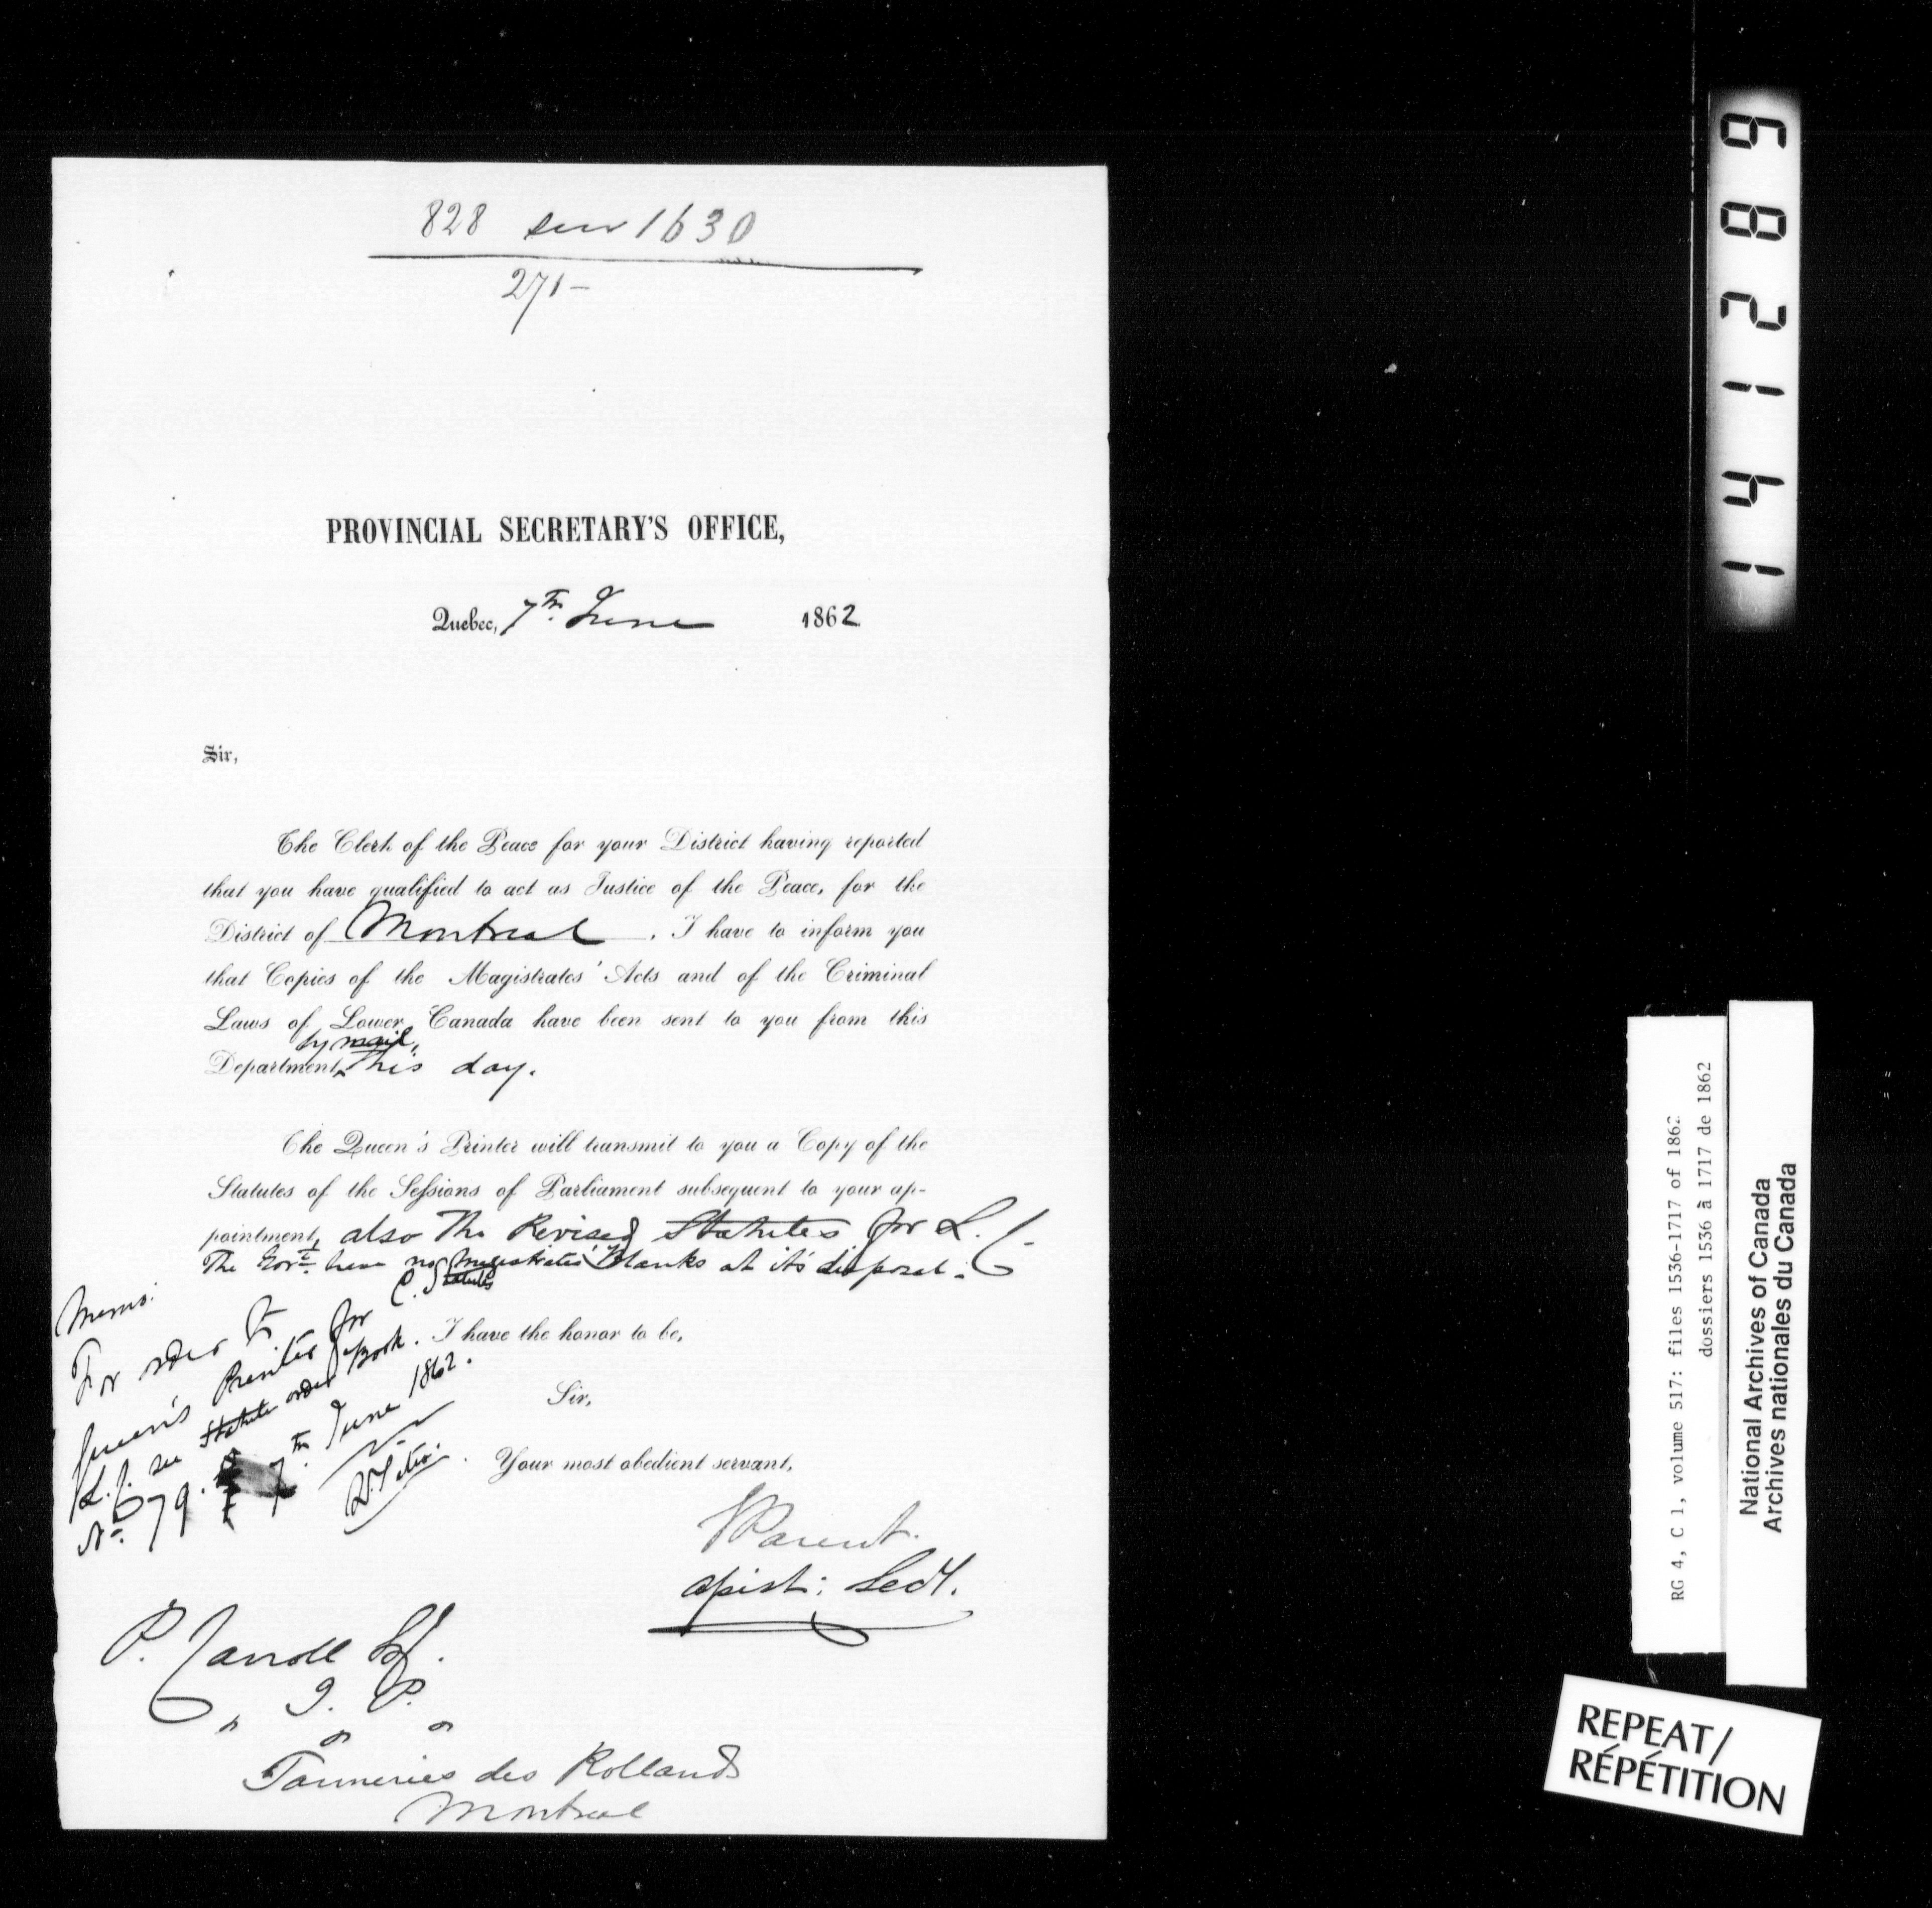 828 sur 1630
271-
PROVINCIAL SECRETARY'S OFFICE,
Quebec, 7th June 1862
Sir,
The Clerk of the Peace for your District having reported
that you have qualified to act as Justice of the Peace, for the
District of Montreal, I have to inform you
that Copies of the Magistrates' Acts and of the Criminal
Laws of Lower Canada have been sent to you from this
by mail,
Department, this day.
The Queen's Printer will transmit to you a Copy of the
Statutes of the Sessions of Parliament subsequent to your ap-
pointment, also The Revised Statutes for L. C.
The Govt. have no Magistrates' Blanks at its disposal.
Memo:
For order to
Queen's Printer for C. Statutes
L.C. see Statute order Book.
No. 79. 7th June 1862.
I have the honor to be,
Sir,
Your most obedient servant,
Parent
Assist: Secy.
P. Carroll Esq.
J. P.
Tanneries des Rollands
Montreal
141286
RG 4, C 1, volume 517: files 1536-1717 of 1862
dossiers 1536 à 1717 de 1862
National Archives of Canada
Archives nationales du Canada
REPEAT/
RÉPÉTITION